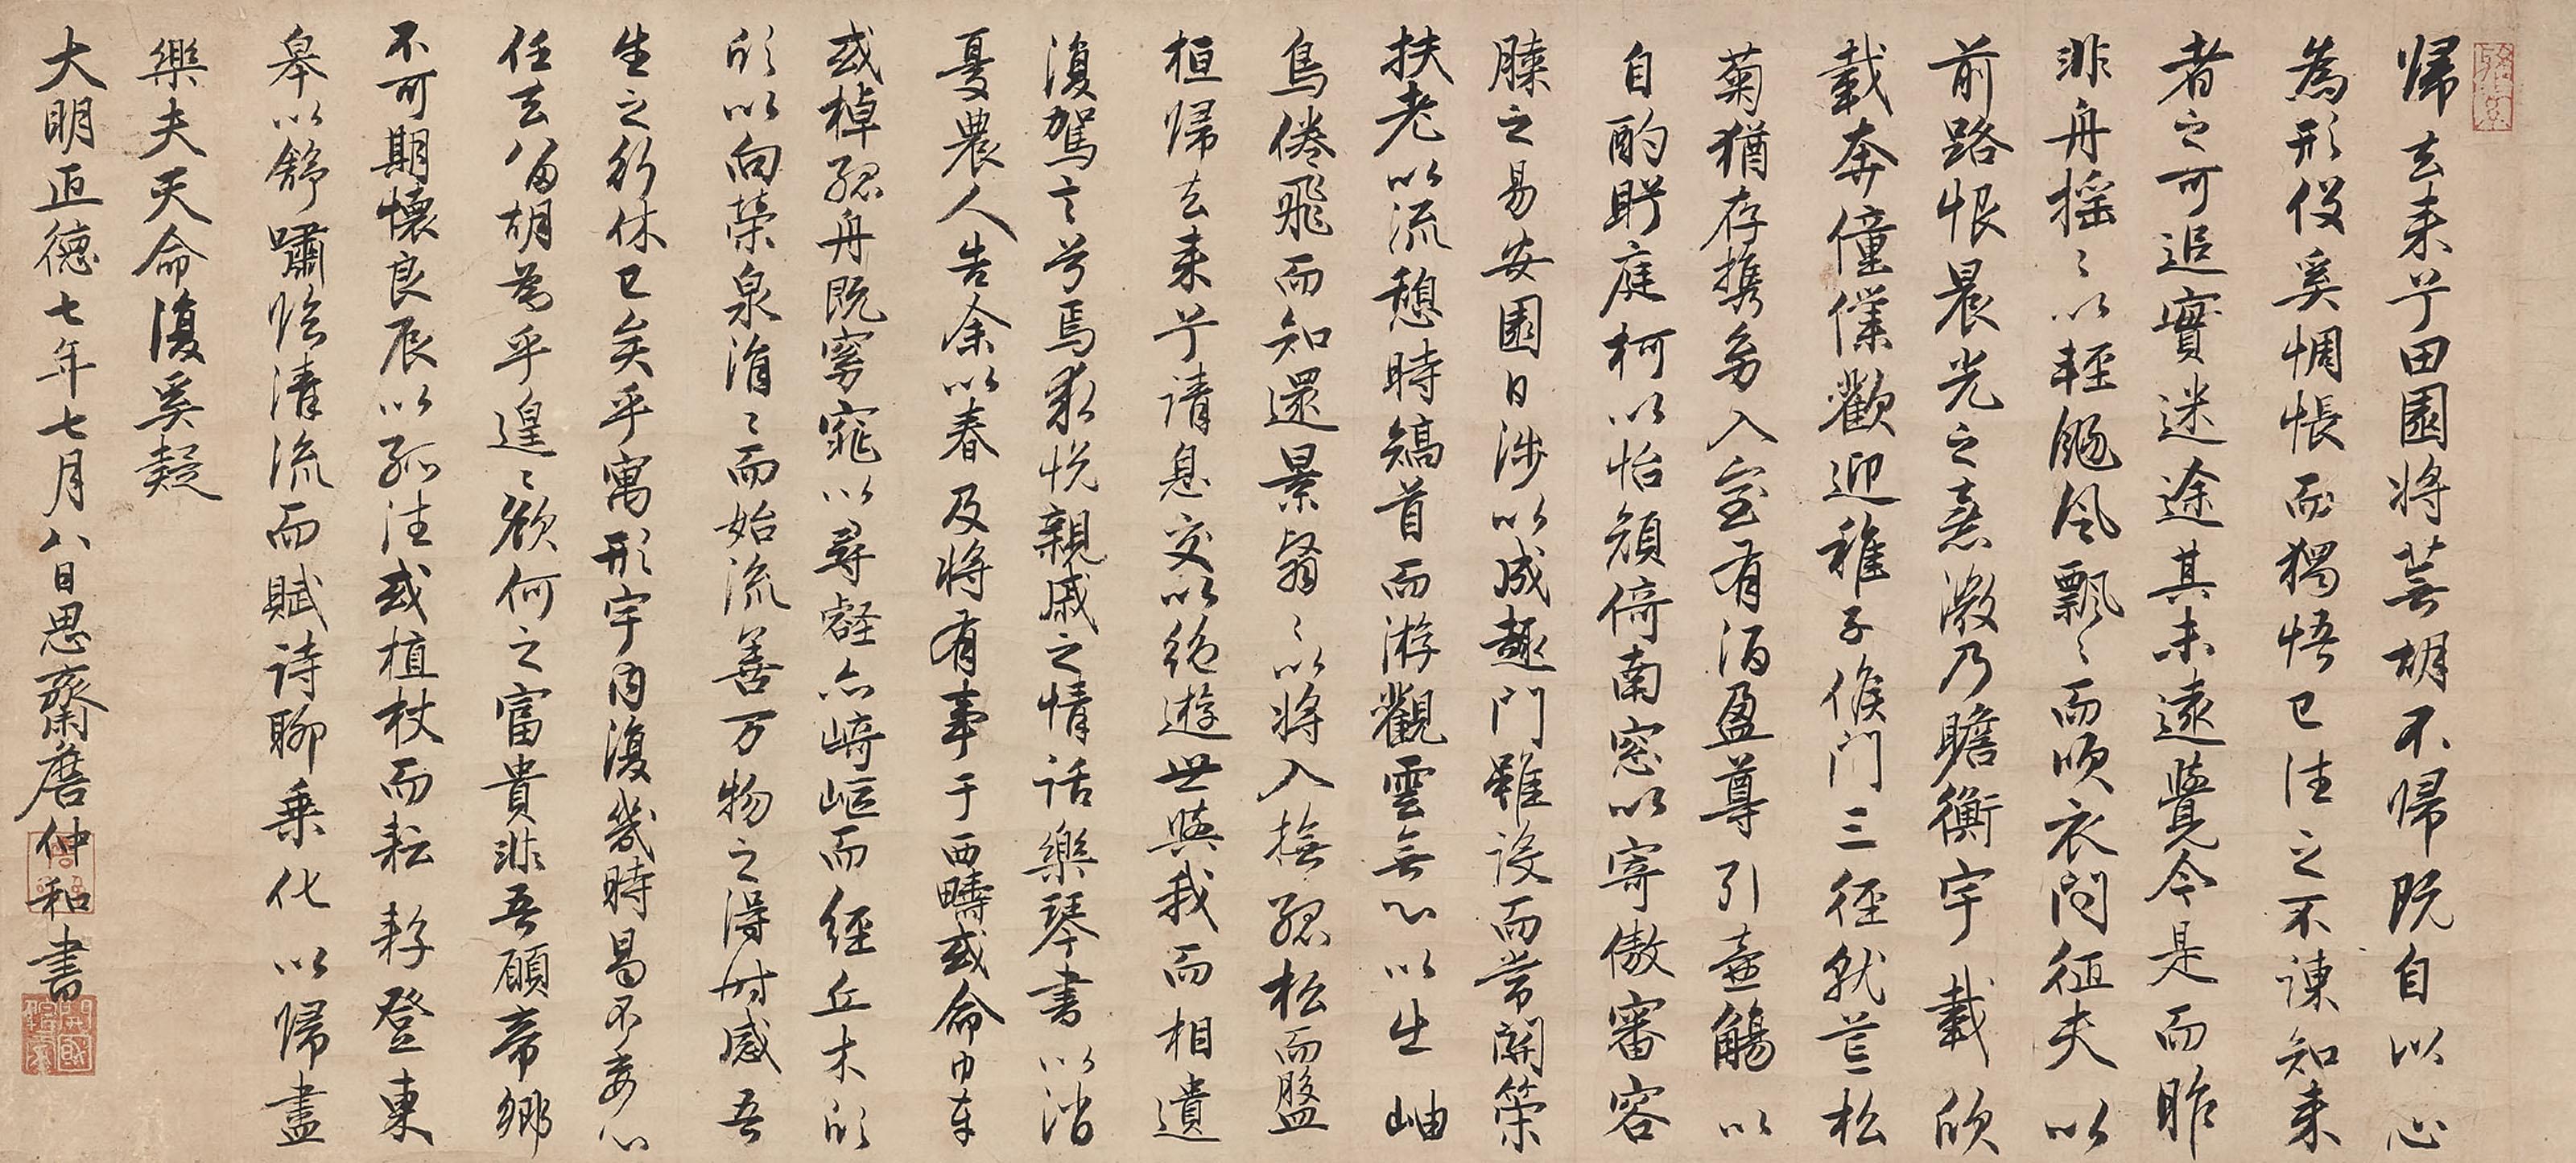 歸去来兮田園将蕪胡不歸既自以心
為形役奚惆悵而獨悟已往之不諫知来
者之可追實迷途其未遠覺今是而昨
非舟揺〻以輕颺風飄〻而吹衣問征夫以
前路恨晨光之熹微乃瞻衡宇載欣
載奔僮僕歡迎稚子候門三徑就荒松
菊猶存携幼入室有酒盈尊引壺觴以
自酌眄庭柯以怡顔倚南窓以寄傲審容
膝之易安園日涉以成趣門雖設而常關策
扶老以流憩時矯首而游觀雲無心以出岫
鳥倦飛而知還景翳〻以将入撫孤松而盤
桓歸去来兮請息交以絶遊世與我而相遺
復駕言兮焉求悦親戚之情話樂琴書以消
憂農人告余以春及将有事于西疇或命巾車
或棹孤舟既窈窕以尋壑亦崎嶇而經丘木欣
欣以向榮泉涓〻而始流善万物之得时感吾
生之行休已矣乎寓形宇内復幾時曷不委心
任去留胡為乎遑〻欲何之富貴非吾願帝鄉
不可期懷良辰以孤往或植杖而耘耔登東
皋以舒嘯臨清流而賦詩聊乗化以歸盡
樂夫天命復奚疑
大明正德七年七月八日思齋詹仲和書